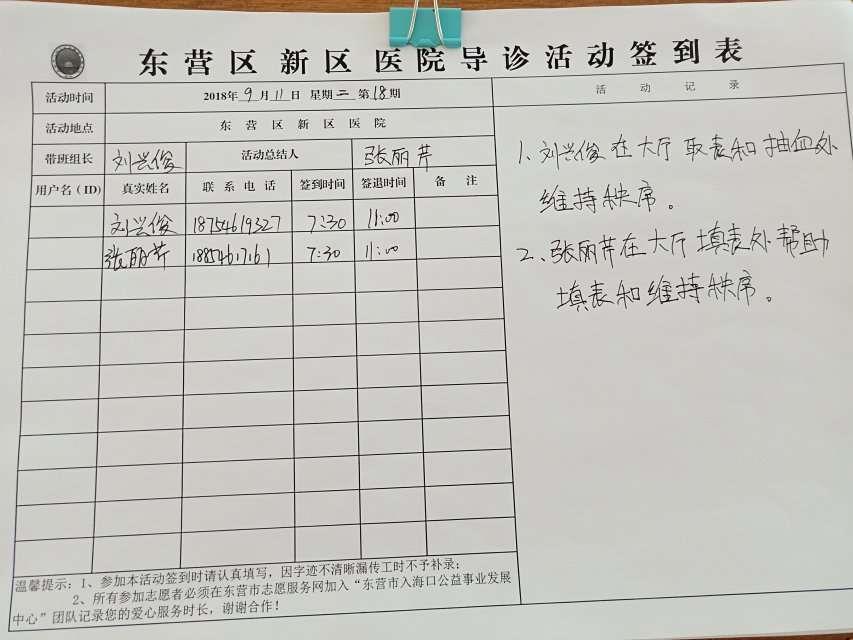 东营区新区医院导诊活动签到表
活动时间 2018年9月11日 星期二 第18期
活动地点 东营区新区医院
带班组长 刘兴俊 活动总结人 张丽芹
用户名(ID) 真实姓名 联系电话 签到时间 签退时间 备注
刘兴俊 18754619327 7:30 11:00
张丽芹 18854617161 7:30 11:00
温馨提示:1、参加本活动签到时请认真填写,因字迹不清晰漏传工时不予补录;
2、所有参加志愿者必须在东营市志愿服务网加入“东营市入海口公益事业发展
中心”团队记录您的爱心服务时长,谢谢合作!
活动记录
1、刘兴俊在大厅取表和抽血处
维持秩席。
2、张丽芹在大厅填表处帮助
填表和维持秩席。